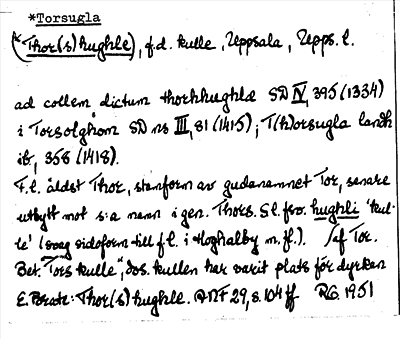 *Torsugla
(*Thor(s)hughle), f.d. kulle, Uppsala, Upps. l.
ad collem dictum thorhhughlæ SD IV, 395 (1334)
i Torsolghom SD ns III, 81 (1415); T(h)orsugla landh
ib, 358 (1418).
F.l. äldst Thor, stamform av gudanamnet Tor, senare
utbytt mot s-a namn i gen. Thors. Sl. fsv. hughli 'kul-
le' (svag sidoform till f.l. i Hoghalby m. fl.). /af Tor.
Bet. "Tors kulle", dvs. kullen har varit plats för dyrkan
E. Brate: Thor(s)hughle. ANF 29, s. 104 ff RG. 1951